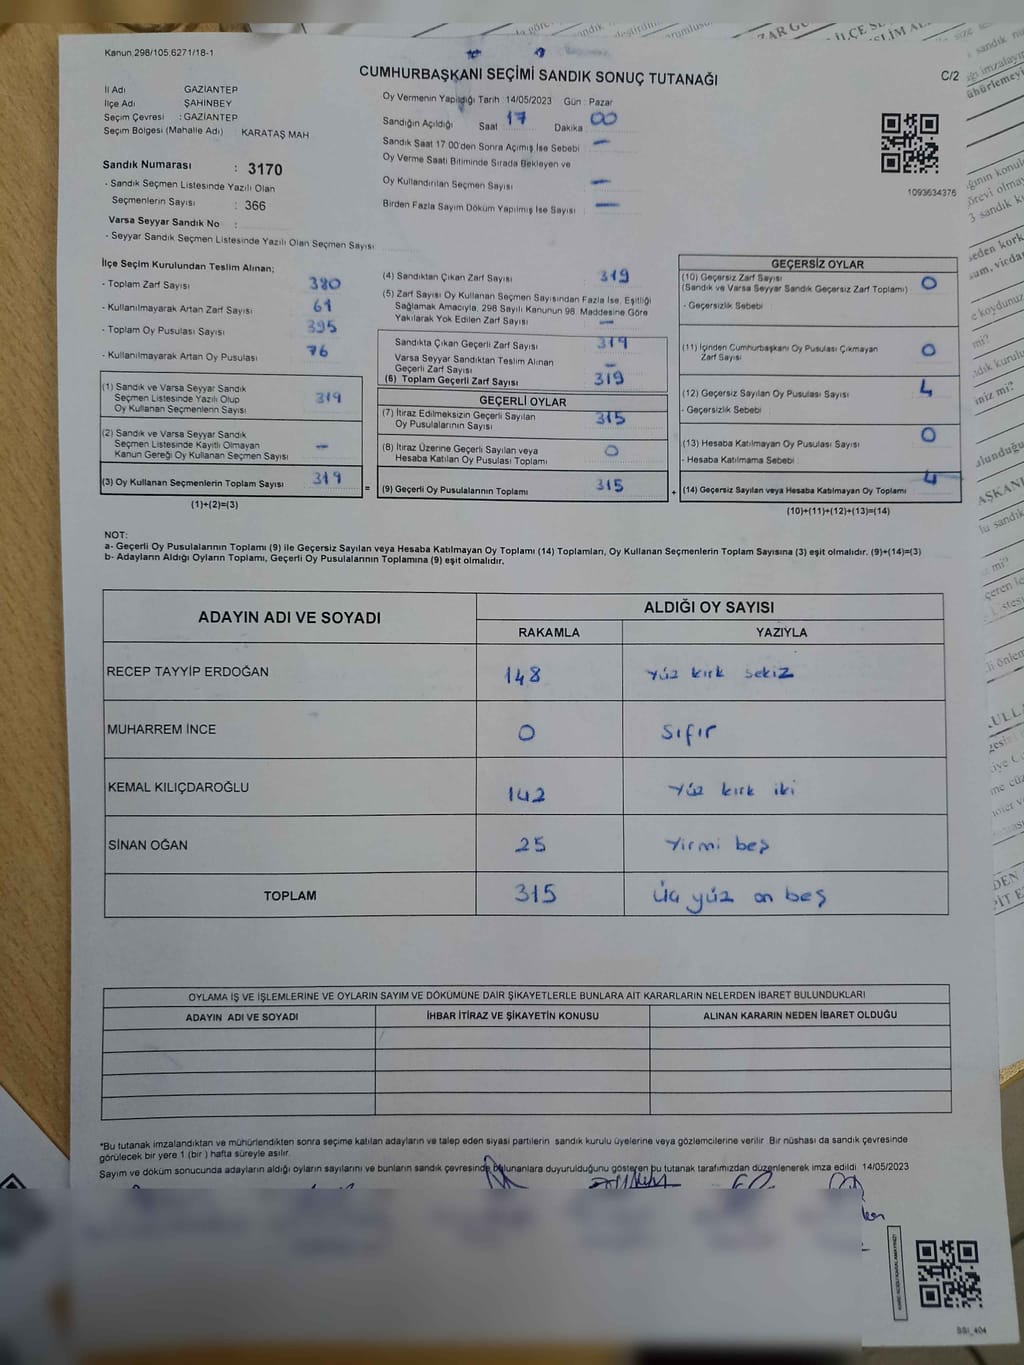 Kanun.298/105.6271/18-1
CUMHURBAŞKANI SEÇİMİ SANDIK SONUÇ TUTANAĞI
C/2
İl Adı GAZİANTEP
İlçe Adı ŞAHİNBEY
Seçim Çevresi : GAZİANTEP
Seçim Bölgesi (Mahalle Adı) KARATAŞ MAH
Sandık Numarası : 3170
- Sandık Seçmen Listesinde Yazılı Olan
Seçmenlerin Sayısı : 366
Varsa Seyyar Sandık No :
- Seyyar Sandık Seçmen Listesinde Yazılı Olan Seçmen Sayısı
Oy Vermenin Yapıldığı Tarih 14/05/2023 Gün : Pazar
Sandığın Açıldığı Saat 17 Dakika 00
Sandık Saat 17 00'den Sonra Açımış İse Sebebi —
Oy Verme Saati Bitiminde Sırada Bekleyen ve
Oy Kullandırılan Seçmen Sayısı —
Birden Fazla Sayım Döküm Yapılmış İse Sayısı —
1093634376
İlçe Seçim Kurulundan Teslim Alınan;
- Toplam Zarf Sayısı 380
- Kullanılmayarak Artan Zarf Sayısı 61
- Toplam Oy Pusulası Sayısı 395
- Kullanılmayarak Artan Oy Pusulası 76
(1) Sandık ve Varsa Seyyar Sandık
Seçmen Listesinde Yazılı Olup
Oy Kullanan Seçmenlerin Sayısı 319
(2) Sandık ve Varsa Seyyar Sandık
Seçmen Listesinde Kayıtlı Olmayan
Kanun Gereği Oy Kullanan Seçmen Sayısı —
(3) Oy Kullanan Seçmenlerin Toplam Sayısı 319
(1)+(2)=(3)
=
(4) Sandıktan Çıkan Zarf Sayısı 319
(5) Zarf Sayısı Oy Kullanan Seçmen Sayısından Fazla İse, Eşitliği
Sağlamak Amacıyla, 298 Sayılı Kanunun 98. Maddesine Göre
Yakılarak Yok Edilen Zarf Sayısı —
Sandıkta Çıkan Geçerli Zarf Sayısı 319
Varsa Seyyar Sandıktan Teslim Alınan
Geçerli Zarf Sayısı —
(6) Toplam Geçerli Zarf Sayısı 319
GEÇERLİ OYLAR
(7) İtiraz Edilmeksizin Geçerli Sayılan
Oy Pusulalarının Sayısı 315
(8) İtiraz Üzerine Geçerli Sayılan veya
Hesaba Katılan Oy Pusulası Toplamı 0
(9) Geçerli Oy Pusulalarının Toplamı 315
+
GEÇERSİZ OYLAR
(10) Geçersiz Zarf Sayısı 0
(Sandık ve Varsa Seyyar Sandık Geçersiz Zarf Toplamı)
- Geçersizlik Sebebi
(11) İçinden Cumhurbaşkanı Oy Pusulası Çıkmayan
Zarf Sayısı 0
(12) Geçersiz Sayılan Oy Pusulası Sayısı 4
- Geçersizlik Sebebi
(13) Hesaba Katılmayan Oy Pusulası Sayısı 0
- Hesaba Katılmama Sebebi
(14) Geçersiz Sayılan veya Hesaba Katılmayan Oy Toplamı 4
(10)+(11)+(12)+(13)=(14)
NOT:
a- Geçerli Oy Pusulalarının Toplamı (9) ile Geçersiz Sayılan veya Hesaba Katılmayan Oy Toplamı (14) Toplamları, Oy Kullanan Seçmenlerin Toplam Sayısına (3) eşit olmalıdır. (9)+(14)=(3)
b- Adayların Aldığı Oyların Toplamı, Geçerli Oy Pusulalarının Toplamına (9) eşit olmalıdır.
ADAYIN ADI VE SOYADI
ALDIĞI OY SAYISI
RAKAMLA YAZIYLA
RECEP TAYYİP ERDOĞAN 148 yüz kırk sekiz
MUHARREM İNCE 0 sıfır
KEMAL KILIÇDAROĞLU 142 yüz kırk iki
SİNAN OĞAN 25 Yirmi beş
TOPLAM 315 Üç yüz on beş
OYLAMA İŞ VE İŞLEMLERİNE VE OYLARIN SAYIM VE DÖKÜMÜNE DAİR ŞİKAYETLERLE BUNLARA AİT KARARLARIN NELERDEN İBARET BULUNDUKLARI
ADAYIN ADI VE SOYADI İHBAR İTİRAZ VE ŞİKAYETİN KONUSU ALINAN KARARIN NEDEN İBARET OLDUĞU
*Bu tutanak imzalandıktan ve mühürlendikten sonra seçime katılan adayların ve talep eden siyasi partilerin sandık kurulu üyelerine veya gözlemcilerine verilir Bir nüshası da sandık çevresinde
görülecek bir yere 1 (bir ) hafta süreyle asılır.
Sayım ve döküm sonucunda adayların aldığı oyların sayılarını ve bunların sandık çevresinde bulunanlara duyurulduğunu gösteren bu tutanak tarafımızdan düzenlenerek imza edildi 14/05/2023
SSI_404